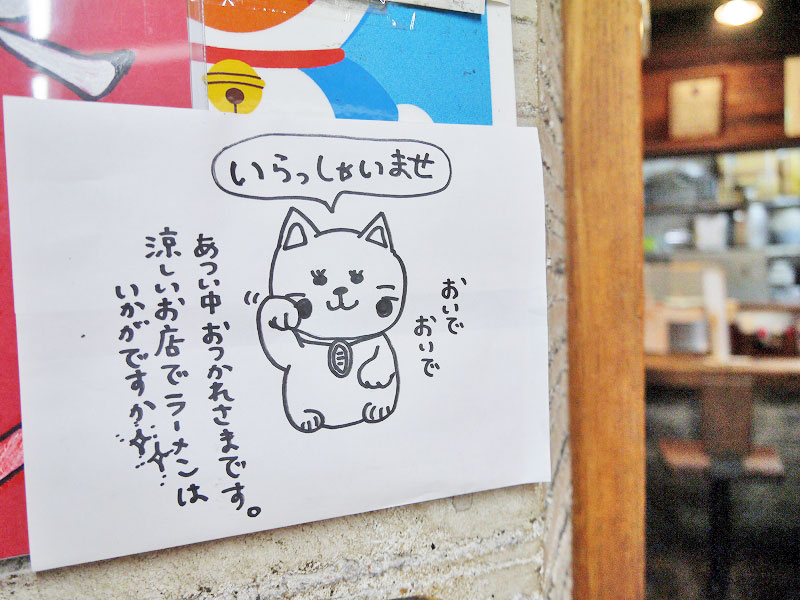 いらっしゃいませ
おいで
おいで
あつい中 おつかれさまです。
涼しいお店でラーメンは
いかがですか